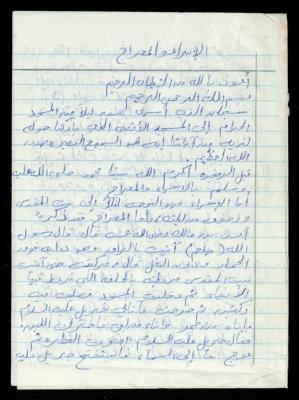 الإسراء والمعراج
أعوذ بالله من الشيطان الرجيم
بسم الله الرحمن الرحيم
سبحان الذي أسرى بعبده ليلاً من المسجد
الحرام إلى المسجد الأقصى الذي باركنا حوله
لنريه من آياتنا إنه هو السميع البصير صدق
الله العظيم.
قبل الهجرة أكرم الله نبينا محمد صلى الله عليه
وسلم بالإسراء والمعراج
أما الإسراء فهو الذهاب ليلاً إلى بيت المقدس
من وأما المعراج فقد
أنس بن مالك رضي الله عنه قال قال رسول
الله (صلعم) أتيت بالبراق وهو دابة فوق
الحمار ودون البغل قال فركبته حتى أتيت
بيت المقدس فربطته بالحلقة التي يربط بها
الأنبياء ثم دخلت المسجد فصليت فيه
ركعتين ثم خرجت فأتاني جبريل عليه السلام
بإناء من خمر وإناء من لبن فاخترت اللبن
فقال جبريل عليه السلام اخترت الفطرة ثم
عرج بنا إلى السماء فاستفتح جبريل عليه